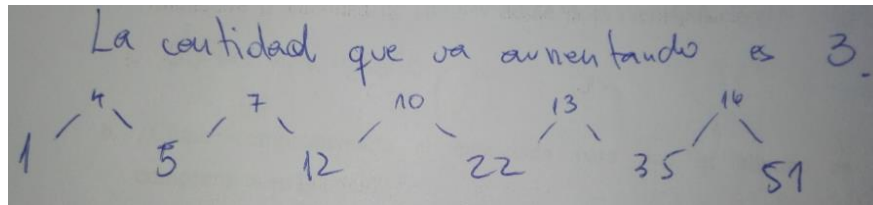 La cantidad que va aumentando es 3.
4 7 10 13 16
1 5 12 22 35 51